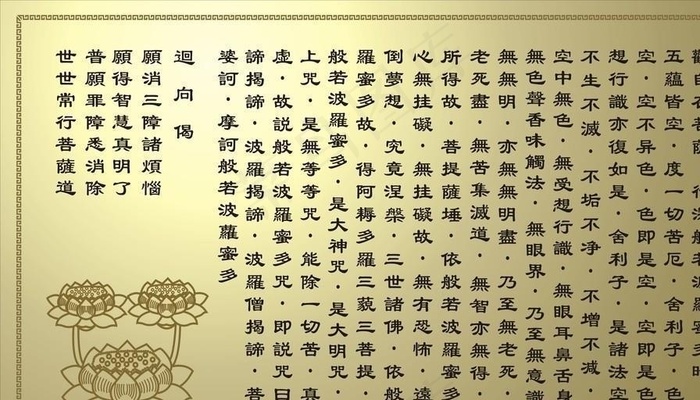 五蘊皆空·度一切苦厄·舍利子·色
空·空不异色·色即是空·空即是色
想行識亦復如是·舍利子·是諸法空
不生不滅·不垢不净·不增不減·
空中無色·無受想行識·無眼耳鼻舌身
無色聲香味觸法·無眼界·乃至無意識
無無明·亦無無明盡·乃至無老死·
老死盡·無苦集滅道·無智亦無得·
所得故·菩提薩埵·依般若波羅蜜多
心無挂礙·無挂礙故·無有恐怖·遠
倒夢想·究竟涅槃·三世諸佛·依般
羅蜜多故·得阿耨多羅三藐三菩提·
般若波羅蜜多·是大神咒·是大明咒·
上咒·是無等等咒·能除一切苦·真
虛·故説般若波羅蜜多咒·即説咒曰
諦揭諦·波羅揭諦·波羅僧揭諦·菩
婆訶·摩訶般若波羅蜜多
迴向偈
願消三障諸煩惱
願得智慧真明了
普願罪障悉消除
世世常行菩薩道